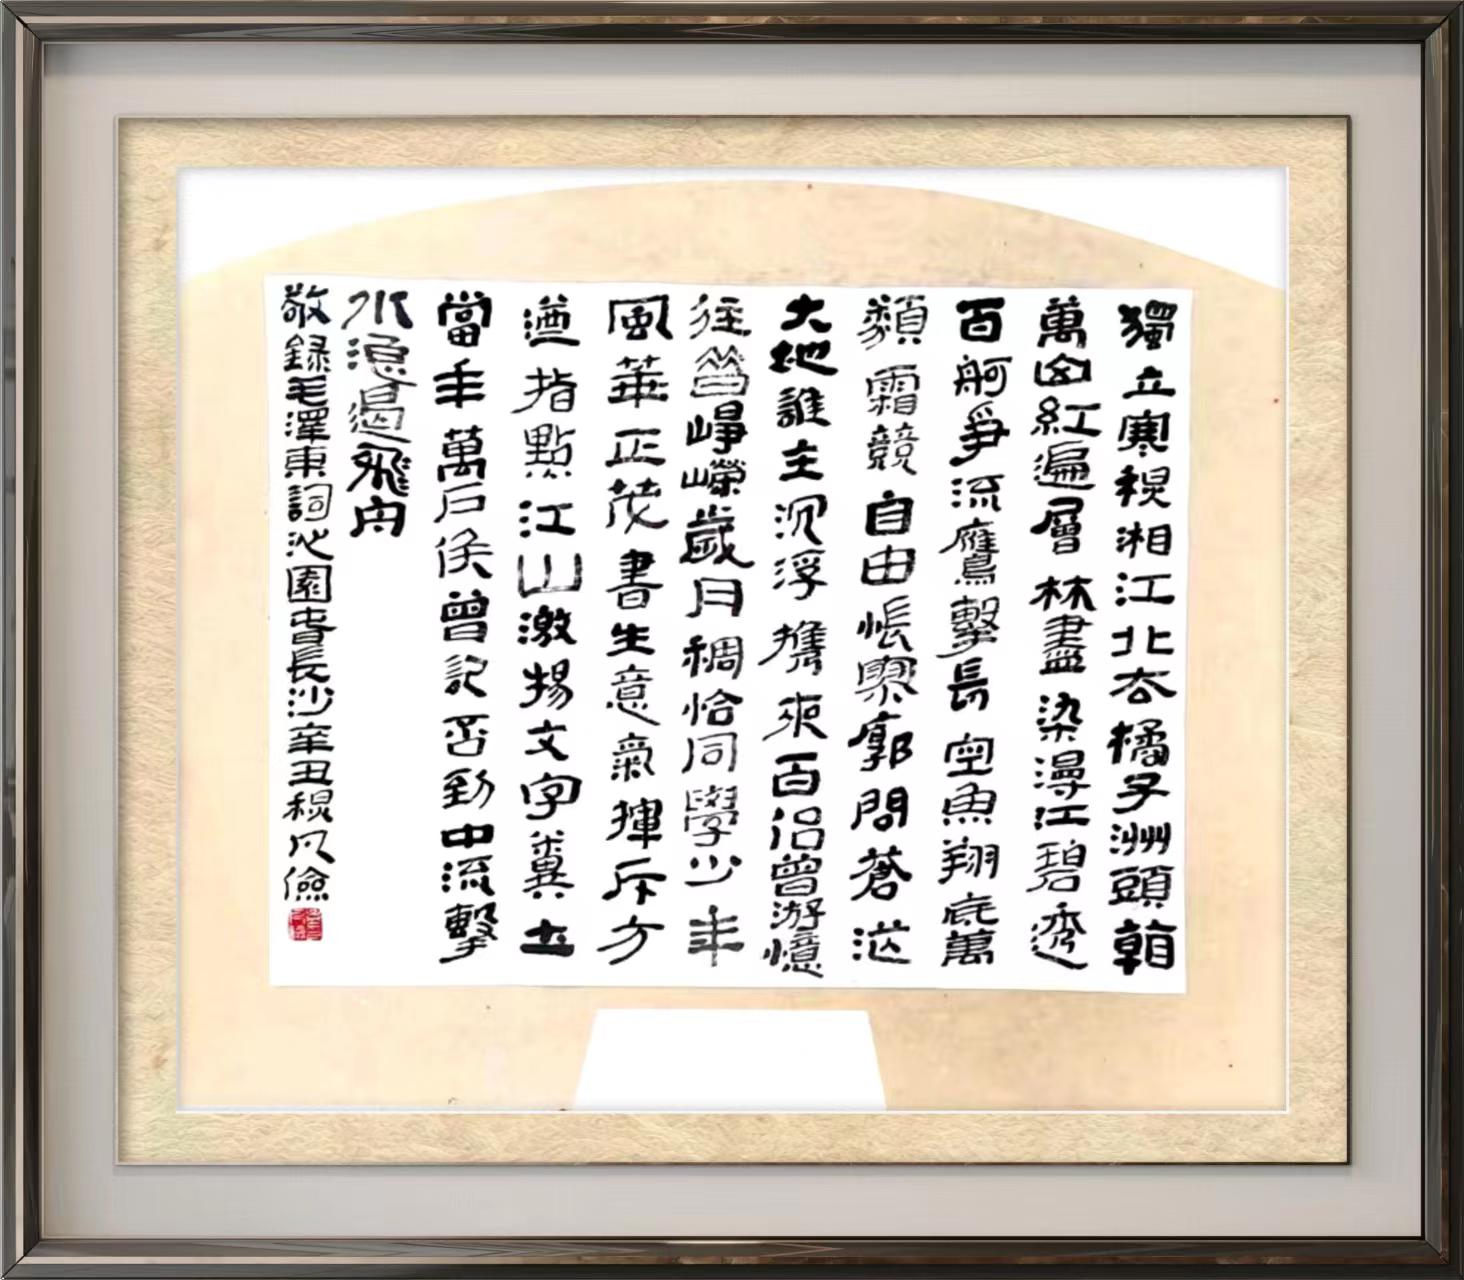 獨立寒秋湘江北去橘子洲頭看
萬山紅遍層林盡染漫江碧透
百舸爭流鷹擊長空魚翔底萬
類霜競自由悵寥廓問蒼茫
大地誰主沉浮攜來百侣曾游憶
往昔崢嶸歲月稠恰同學少年
風華正茂書生意氣揮斥方
遒指點江山激揚文字糞土
當年萬户侯曾記否到中流擊
水浪遏飛舟
敬録毛澤東詞沁園春長沙辛丑秋凡儉